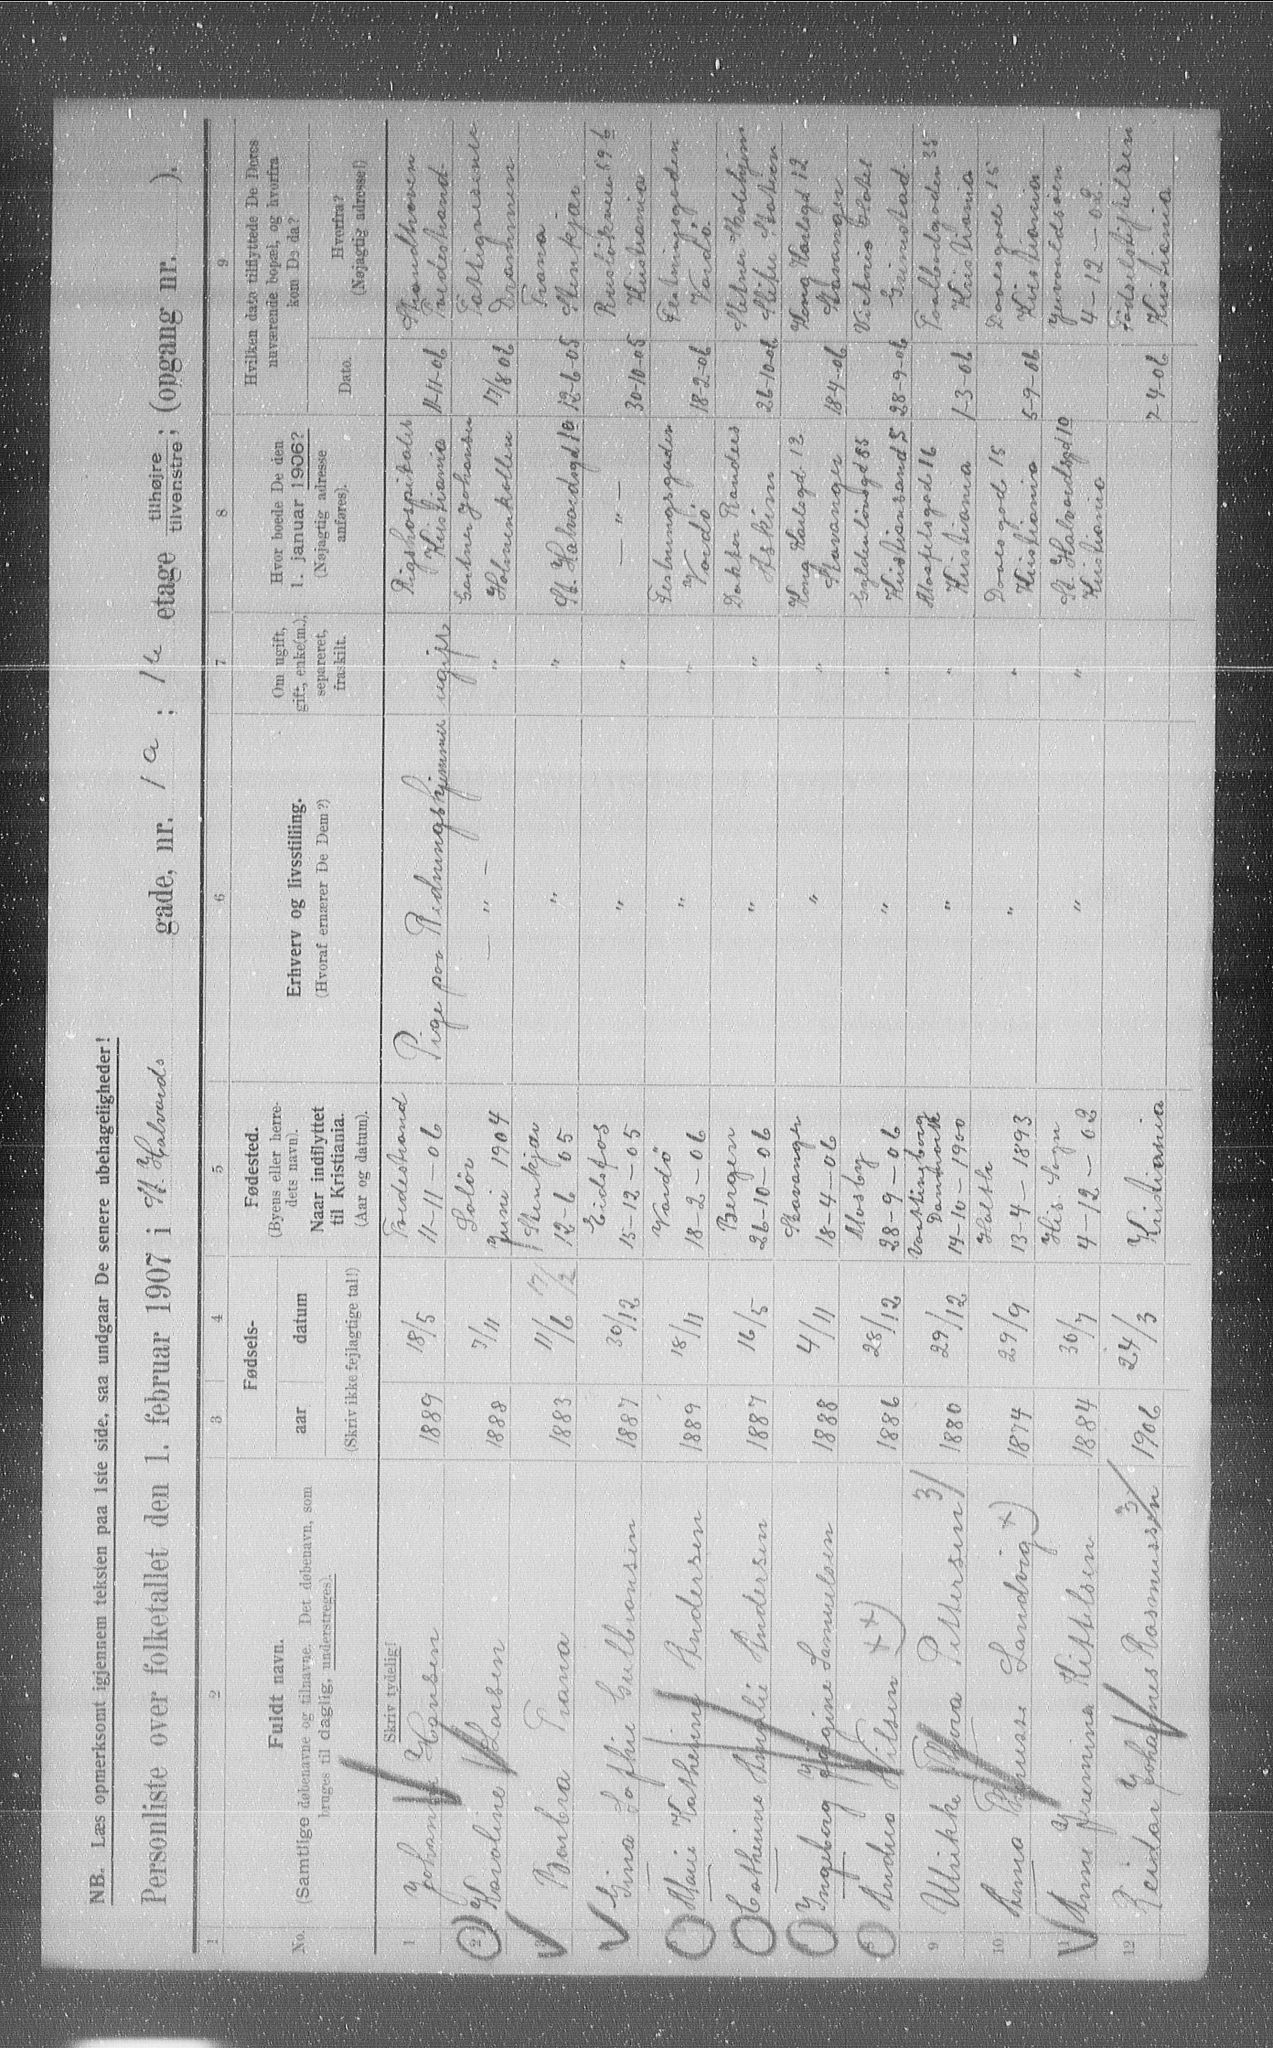 NB. Læs opmerksomt igjennem teksten paa 1ste side, saa undgaar De senere ubehageligheder!
Personliste over folketallet den 1. februar 1907 i St. Halvards gade, nr. 1 a ; 1ste etage tilhøire / tilvenstre; (opgang nr. ).
1 2 3 4 5 6 7 8 9
No. Fuldt navn. (Samtlige døbenavne og tilnavne. Det døbenavn, som bruges til daglig, understreges). Skriv tydelig!
Fødsels- aar datum (Skriv ikke fejlagtige tal!)
Fødested. (Byens eller herredets navn). Naar indflyttet til Kristiania. (Aar og datum).
Erhverv og livsstilling. (Hvoraf ernærer De Dem?)
Om ugift, gift, enke(m.), separeret, fraskilt.
Hvor boede De den 1. januar 1906? (Nøjagtig adresse anføres).
Hvilken dato tilflyttede De Deres nuværende bopæl, og hvorfra kom De da?
Dato. Hvorfra? (Nøjagtig adresse!)
1 Johanne Hansen 1889 18/5 Tvedestrand 11-11-06 Pige paa Redningshjemmet ugift Rigshospitalet Kristiania 11-11-06 Tvedestrand
2 Karoline Larsen 1888 7/11 Solör Juni 1904 — " — " Gartner Johansen Holmenkollen 17/8 06 Drammen
3 Barbra Trana 1883 11/6 17/2 Stenkjær 12-6 05 " " St. Halvardsgd 1a 12-6-05 Trana Stenkjær
Gina Sofhie Gulbransen 1887 30/12 Eidsfos 15-12-05 " " — " — 30-10-05 Kristiania
Marie Kathrine Andersen 1889 18/11 Vardö 18-2-06 " " Festningsgaden Vardö 18-2-06 Festningsgaden Vardö
Cathrine Amalie Andersen 1887 16/5 Bergen 26-10-06 " " Doktor Randers Askim 26-10-06
Ingeborg Jörgine Samuelsen 1888 4/11 Stavanger 18-4-06 " " Kong Karlsgd. 12 Stavanger 18-4-06 Kong Karlsgd 12 Stavanger
Andrea Nilsen xx) 1886 28/12 Mosby 28-9-06 " " Kristiansand S 28-9-06 Victoria Hotel Grimstad
9 Ulrikke Thora Pettersen 3/ 1880 29/12 Vordingborg Danmark 14-10-1900 " " 16 Kristiania 1-3-06 35 Kristiania
10 Anna Landvig x) 1874 29/9 Holth 13-4-1893 " " Daasgad 15 Kristiania 5-9-06 Daasgad 15 Kristiania
11 Anne Jeremina Kittelsen 1884 30/7 His Sogn 4-12-02 " " St. Halvardsgd 1a Kristiania 4-12-02
12 Reidar Johannes Rasmussen 3/ 1906 24/3 Kristiania 2-4-06 Födselsstiftelsen Kristiania